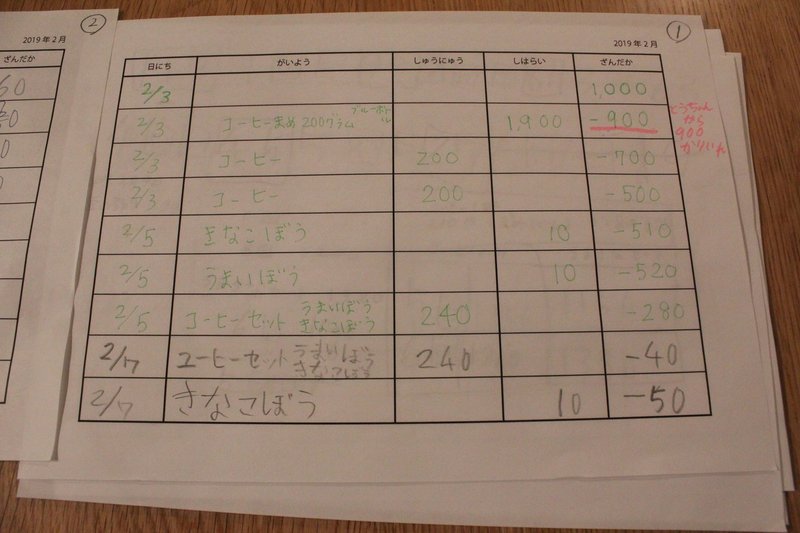 ②
2019年2月
ざんだか
①
2019年2月
日にち がいよう しゅうにゅう しはらい ざんだか
2/3 1,000
2/3 コーヒーまめ200グラム ブルーボトル 1,900 -900
とうちゃん
から
900
かりいれ
2/3 コーヒー 200 -700
2/3 コーヒー 200 -500
2/5 きなこぼう 10 -510
2/5 うまいぼう 10 -520
2/5 コーヒーセット うまいぼう きなこぼう 240 -280
2/7 コーヒーセット うまいぼう きなこぼう 240 -40
2/7 きなこぼう 10 -50